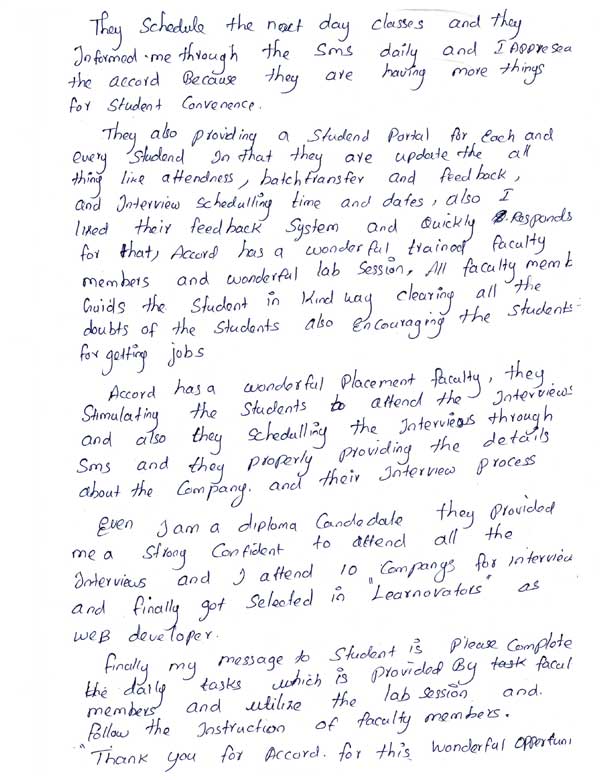 They Schedule the next day classes and they
Informed me through the Sms daily and I Appresea
the accord Because they are having more things
for Student Convenence.
They also providing a Studend Portal for Each and
every Studend In that they are update the all
thing like attendness, batchtransfer and feedback,
and Interview schedulling time and dates, also I
liked their feedback System and Quickly Responds
for that, Accord has a wonderful trained faculty
members and wonderful lab Session, All faculty memb
Guids the Student in Kind way clearing all the
doubts of the Students also Encouraging the Students
for getting jobs
Accord has a wonderful Placement faculty, they
Stimulating the Students to attend the Interviews
and also they schedulling the Interviews through
Sms and they properly providing the details
about the Company. and their Interview process
Even I am a diploma Candedate they provided
me a Strong Confident to attend all the
Interviews and I attend 10 Companys for interview
and finally got Selected in "Learnovators" as
web developer.
Finally my message to Student is Please Complete
the daily tasks which is provided By task facul
members and utilize the lab session and.
follow the Instruction of faculty members.
"Thank you for Accord. for this wonderful opportuni